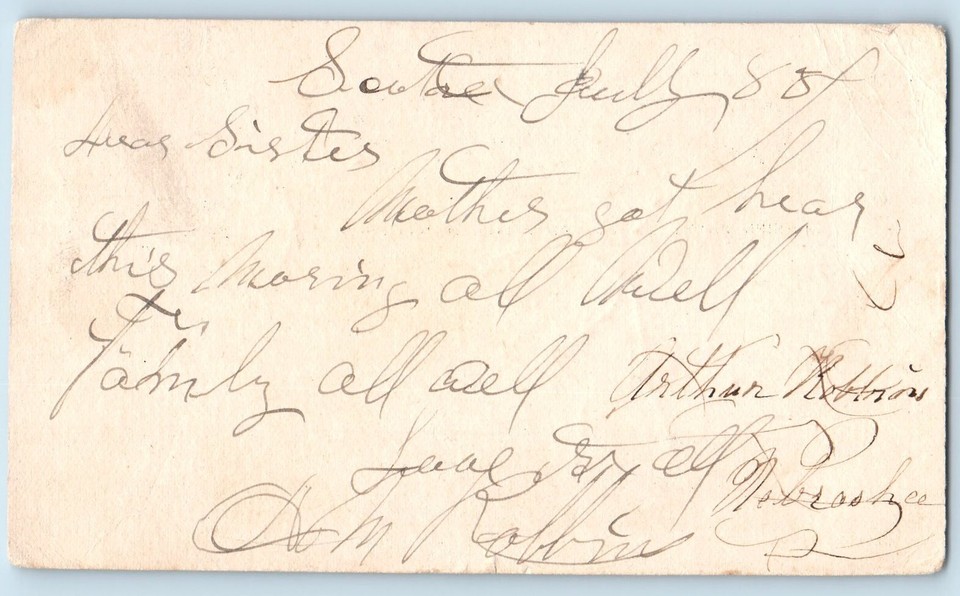 July 8 87
Dear Sister
Mother got hear
this Moring all Well
Family all well
Arthur Robbins
Love To all
Nebraska
A M Robbins